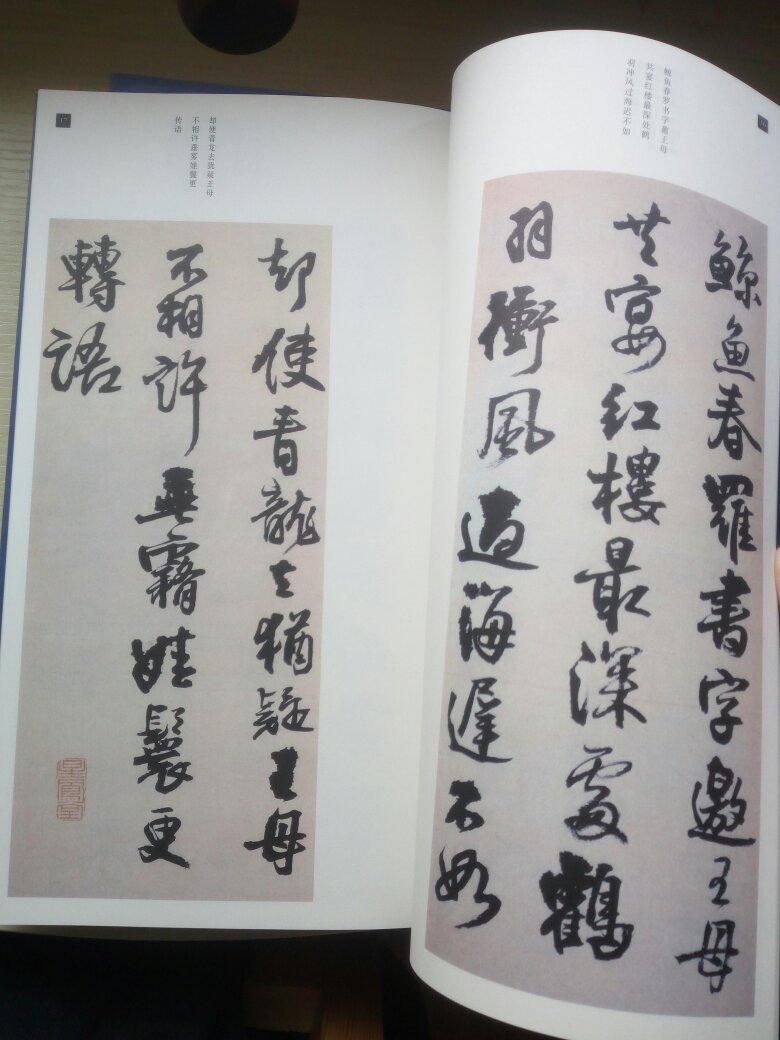 鲸鱼春罗书字邀王母
共宴红楼最深处鹤
羽冲风过海迟不如
鯨魚春羅書字邀王母
共宴紅樓最深處鶴
羽衝風過海遲不如
17
却使青龙去犹疑王母
不相许垂雾娃鬟更
传语
却使青龍去猶疑王母
不相許垂霧娃鬟更
轉語